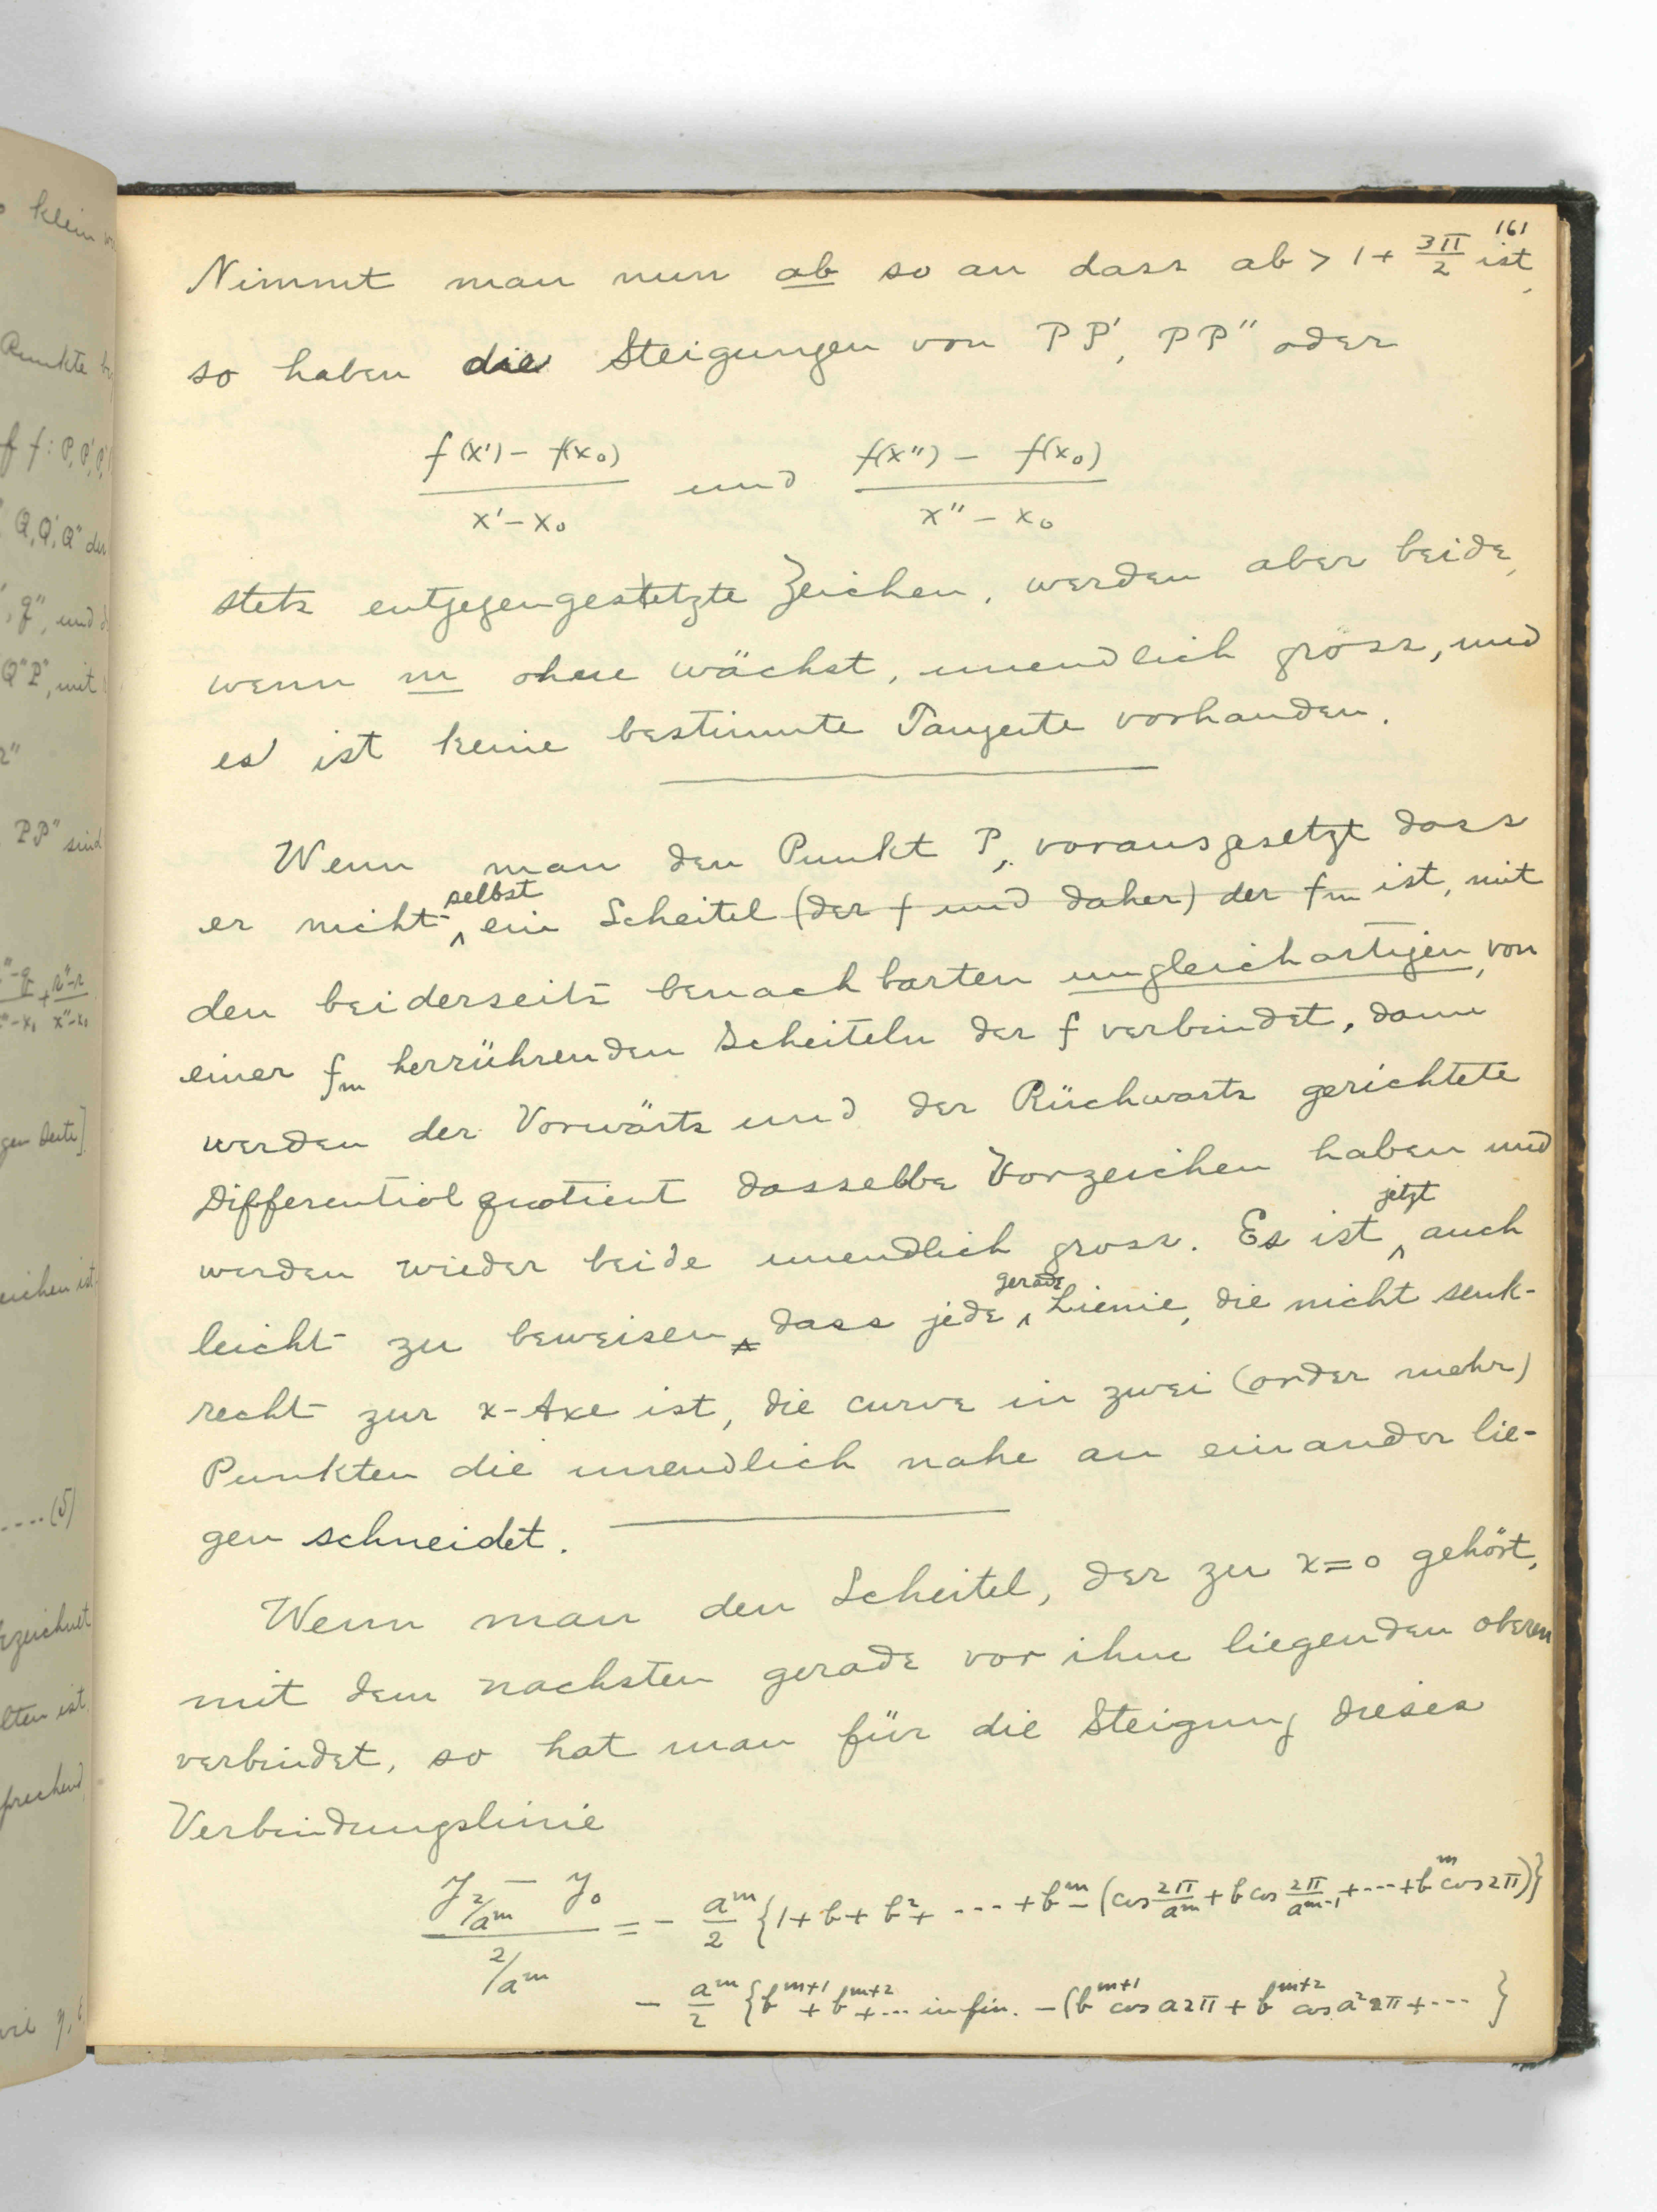 161
Nimmt man nun ab so an dass ab > 1 + 3π/2 ist,
so haben die Steigungen von PP', PP'' oder
(f(x') - f(x₀))/(x' - x₀) und (f(x'') - f(x₀))/(x'' - x₀)
stets entgegengesetzte Zeichen, werden aber beide,
wenn m ohne wächst, unendlich gross, und
es ist keine bestimmte Tangente vorhanden.
Wenn man den Punkt P, vorausgesetzt dass
er nicht selbst ein Scheitel (der f und daher) der fm ist, mit
den beiderseits benachbarten ungleichartigen, von
einer fm herrührenden Scheiteln der f verbindet, dann
werden der Vorwärts und der Rückwarts gerichtete
Differentialquotient dasselbe Vorzeichen haben und
werden wieder beide unendlich gross. Es ist jetzt auch
leicht zu beweisen, dass jede gerade Lienie, die nicht senk-
recht zur x-Axe ist, die curve in zwei (order mehr)
Punkten die unendlich nahe an einander lie-
gen schneidet.
Wenn man den Scheitel, der zu x=0 gehört,
mit dem nachsten gerade vor ihm liegenden oberen
verbindet, so hat man für die Steigung dieses
Verbindungslinie
(y_{2/a^m} - y₀)/(2/a^m) = - a^m/2 {1 + b + b² + ---- + b^m - (cos 2π/a^m + b cos 2π/a^{m-1} + ---- + b^m cos 2π)}
- a^m/2 {b^{m+1} + b^{m+2} + --- in fin. - (b^{m+1} cos a2π + b^{m+2} cos a²2π + --- }
o klein
Punkte
f f: P, P', P''
Q, Q', Q'' der
q'', und
Q''P'', mit
PP'' sind
eichen ist
---- (5)
ezeichnet
lten ist
sprechend